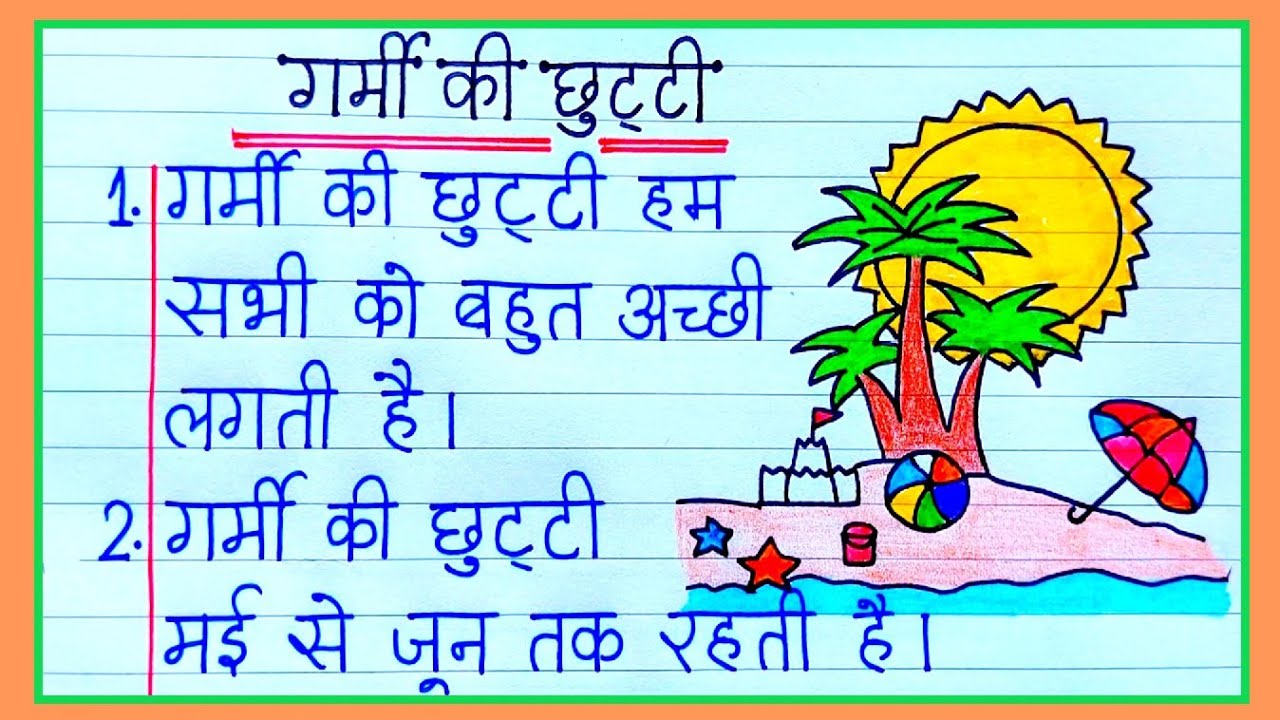 गर्मी की छुट्टी
1. गर्मी की छुट्टी हम
सभी को बहुत अच्छी
लगती है।
2. गर्मी की छुट्टी
मई से जून तक रहती है।